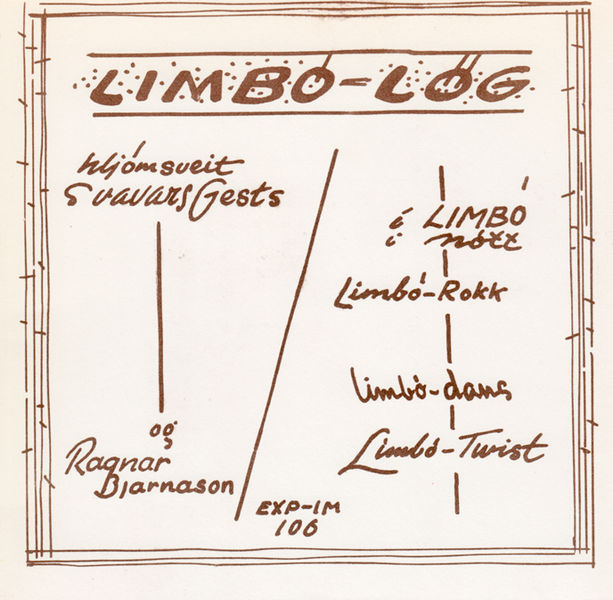 LIMBÓ-LÖG
hljómsveit
Svavars Gests
og
Ragnar
Bjarnason
EXP-IM
106
í LIMBÓ
í nótt
Limbó-Rokk
limbó-dans
Limbó-Twist